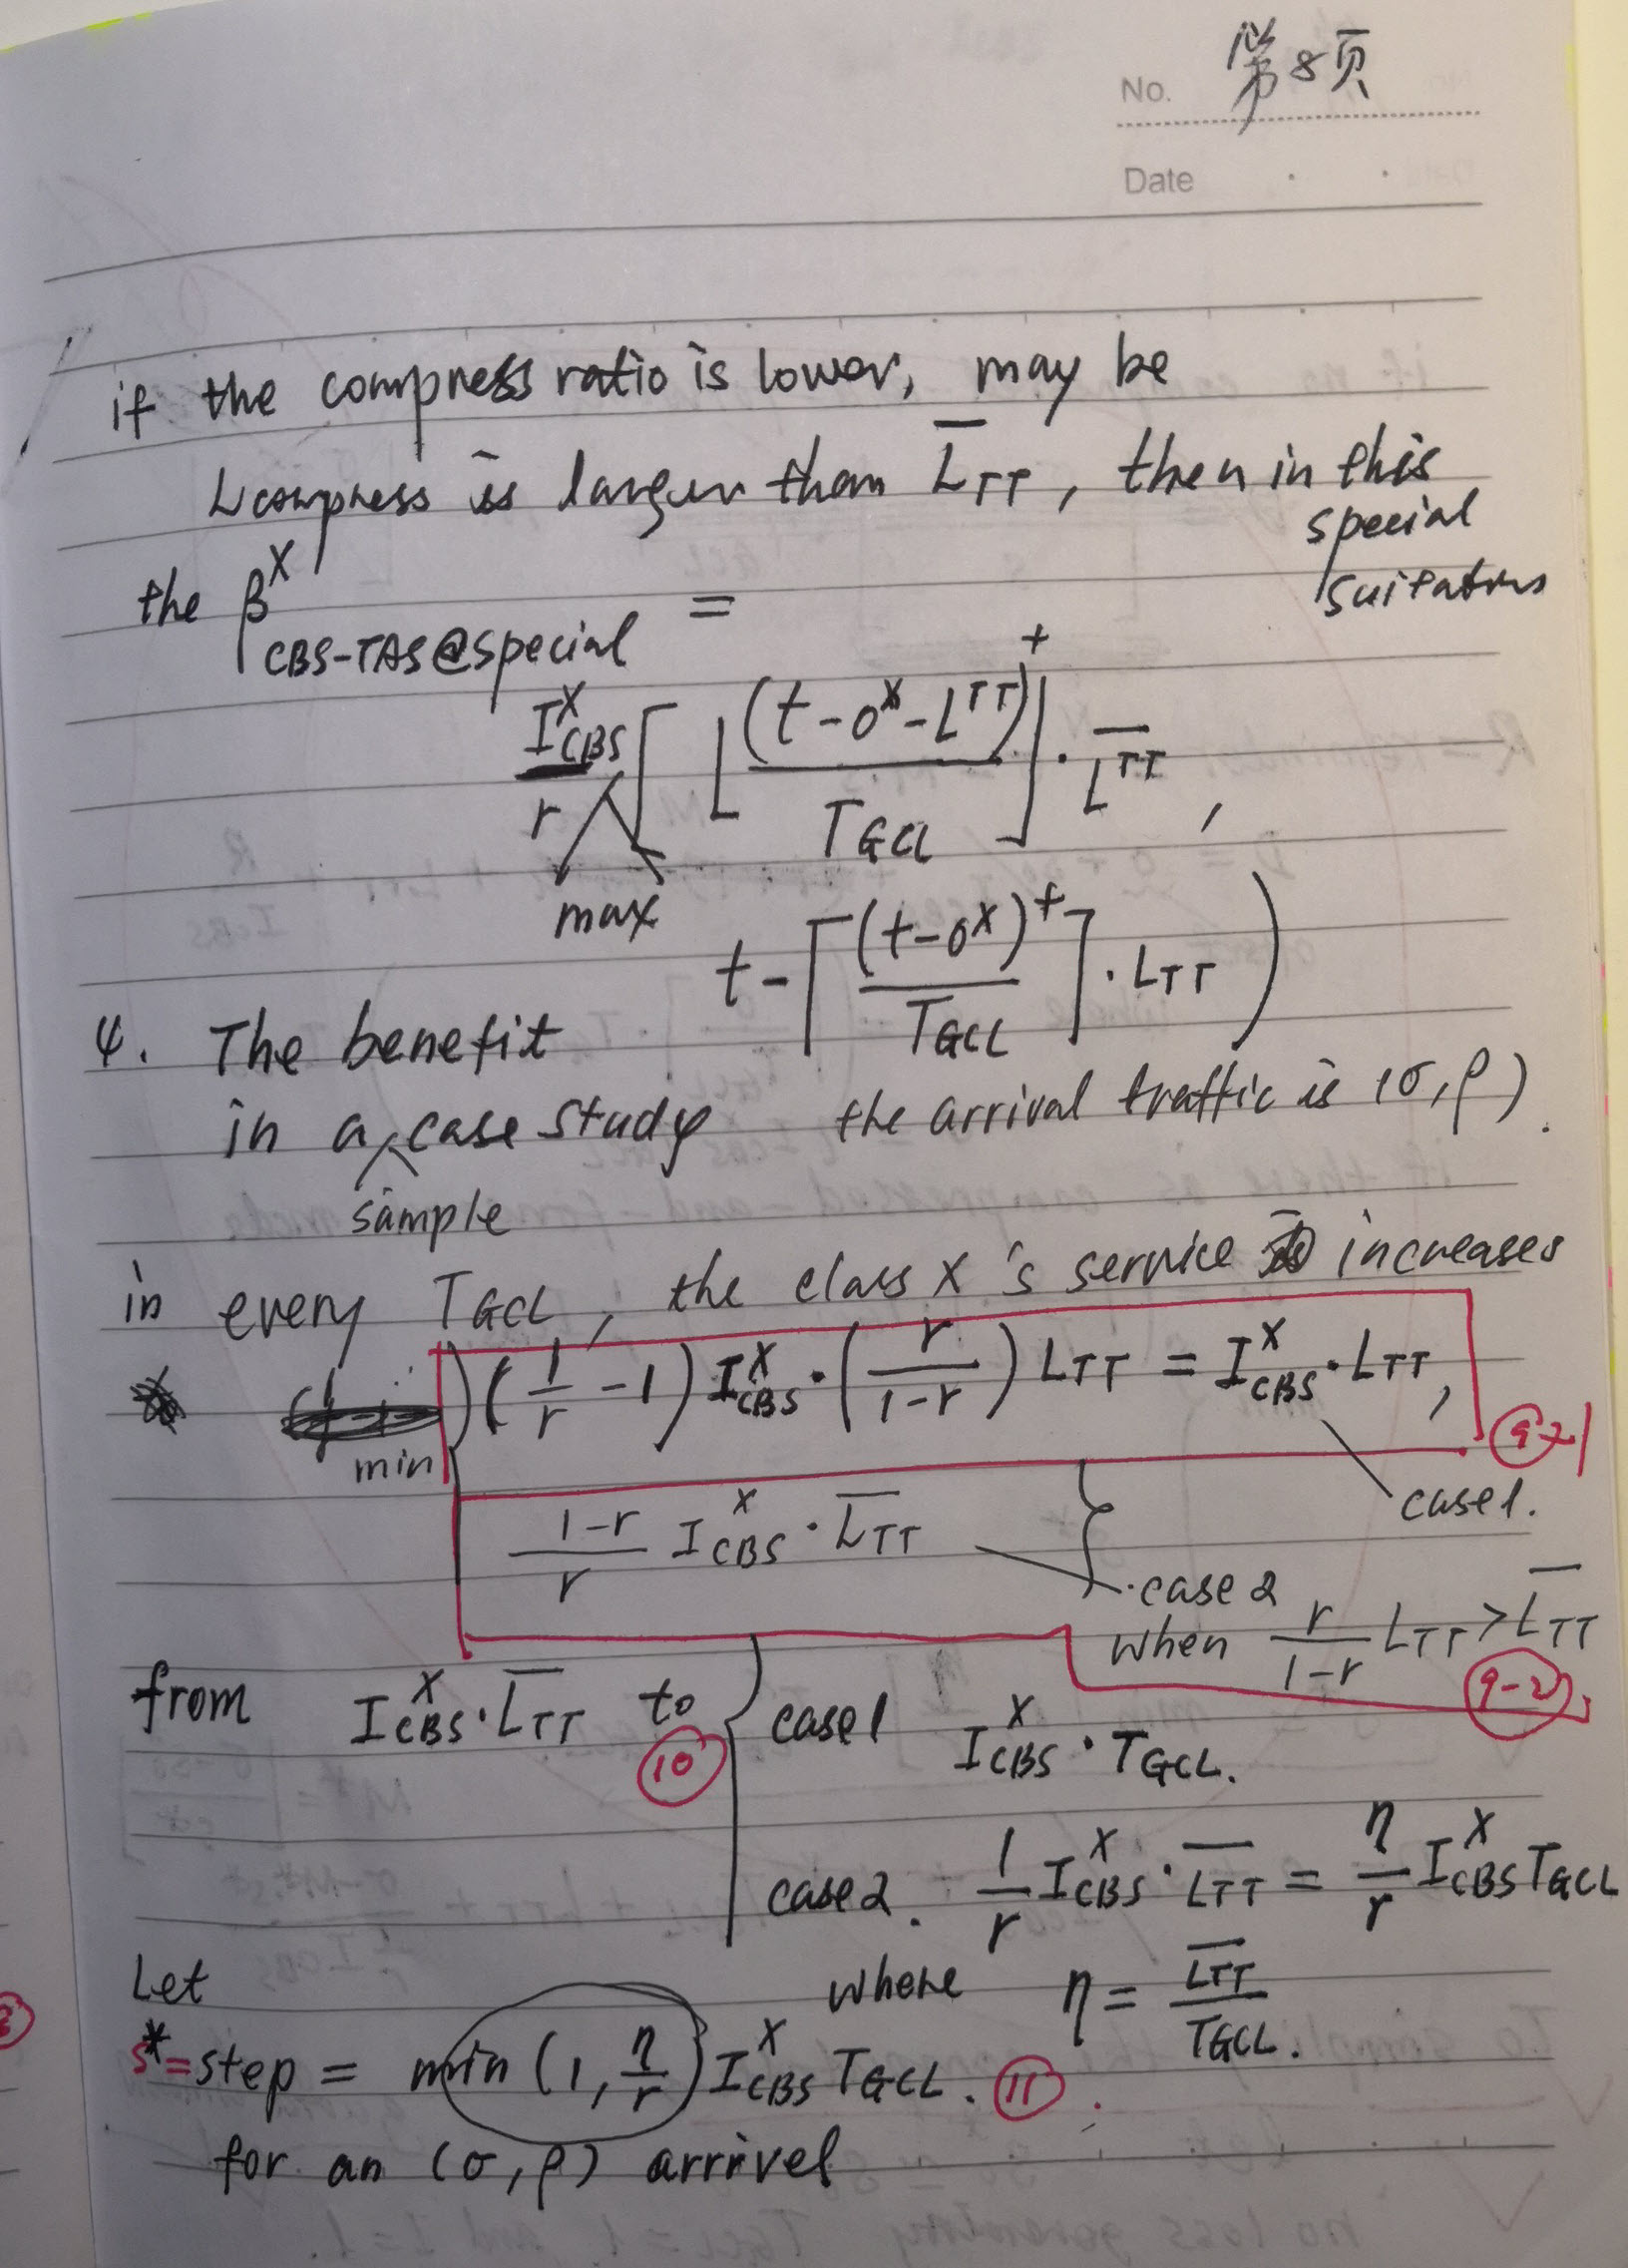 No. 第8页
Date
if the compress ratio is lower, may be
Lcompress is larger than L̅_TT, then in this
special
suitatons
the β^X_CBS-TAS@special =
I^X_CBS / r max [ ⌊ (t-o^X-L^TT)^+ / T_GCL ⌋ · L̅^TT,
t - ⌈ (t-o^X)^+ / T_GCL ⌉ · L_TT )
4. The benefit
in a sample case study the arrival traffic is (σ, ρ).
in every T_GCL, the class X's service increases
min (1/r - 1) I^X_CBS · (r/(1-r)) L_TT = I^X_CBS · L_TT, 9-1
case1.
(1-r)/r I^X_CBS · L̅_TT
case2
when r/(1-r) L_TT > L̅_TT 9-2
from I^X_CBS · L̅_TT to 10 { case1 I^X_CBS · T_GCL.
case2. 1/r I^X_CBS · L̅_TT = η/r I^X_CBS T_GCL
Let where η = L̅_TT / T_GCL.
s* = step = min (1, η/r) I^X_CBS T_GCL. 11.
for an (σ, ρ) arrivel